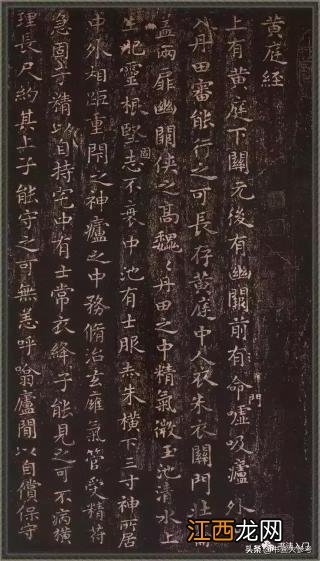 黄庭経
上有黄庭下關元後有幽闕前有命門噓吸廬外
入丹田審能行之可長存黄庭中人衣朱衣關門壯
盖兩扉幽闕俠之髙魏〻丹田之中精氣微玉池清水上
生肥靈根堅固志不衰中池有士服赤朱横下三寸神所居
中外相距重閉之神廬之中務脩治玄膺氣管受精苻
急固子精以自持宅中有士常衣絳子能見之可不病横
理長尺約其上子能守之可無恙呼噏廬間以自償保守
江西龙网